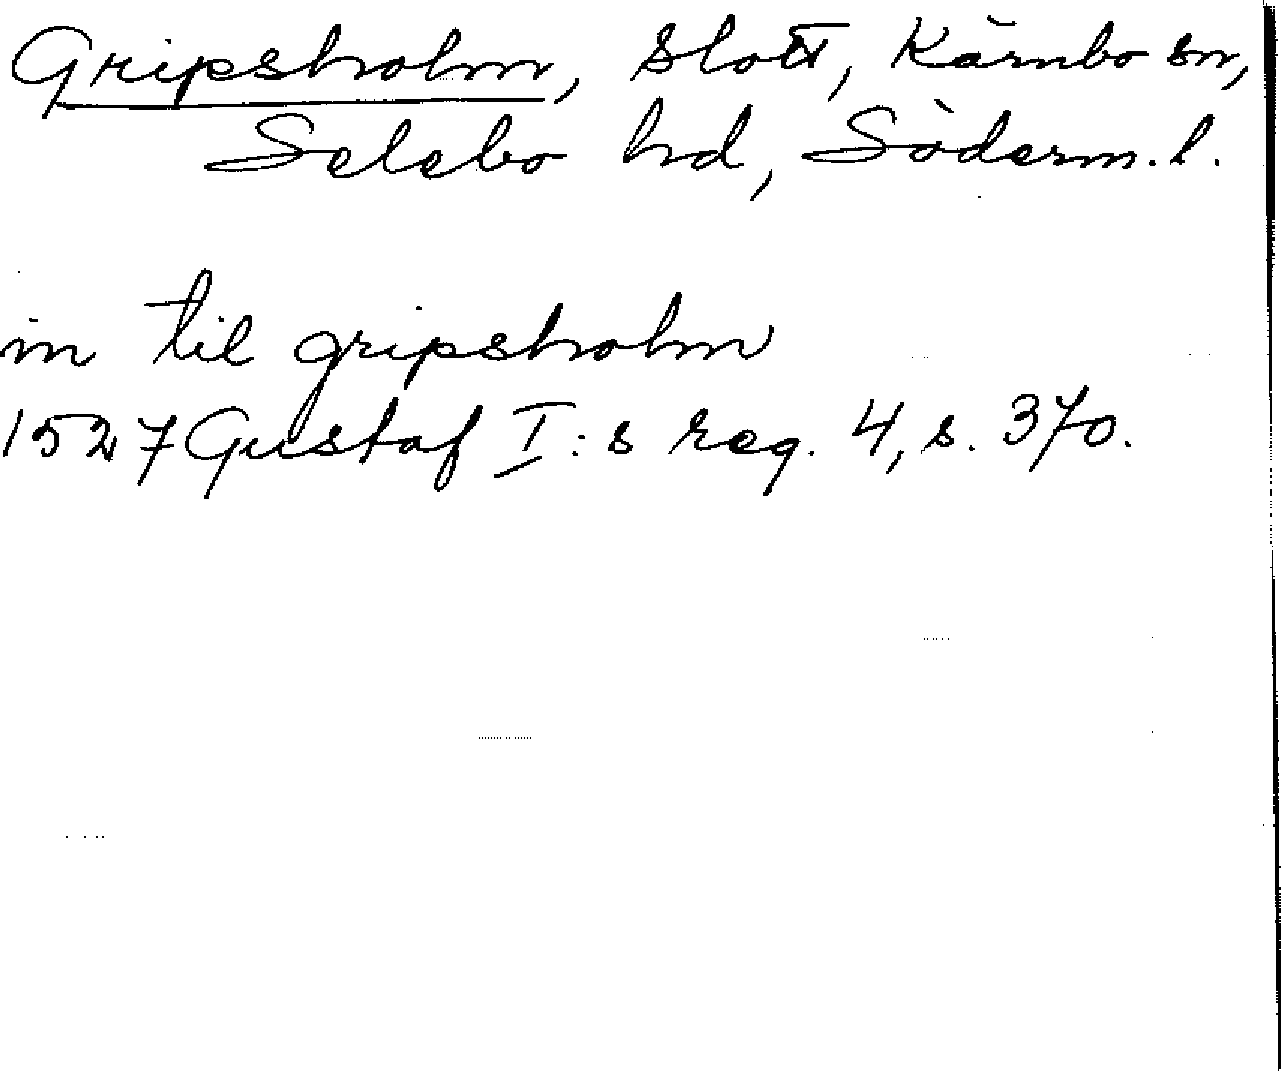 Gripsholm, slott, Kärnbo sn,
Selebo hd, Söderm. l.
in til gripsholm
1527 Gustaf I:s reg. 4, s. 370.